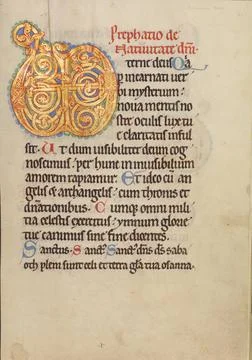 Prephatio de
Natiuitate dñi.
terne deus. Q̇a
p incarnati uer
bi mysterium:
noua mentis no
stre oculis lux tu
e claritatis inful
sit. Ut dum uisibiliter deum cog
noscimus: per hunc in inuisibilium
amorem rapiamur. Et ideo cū an
gelis & archangelis: cum thronis et
dñationibus. Cumque omni mili
tia celestis exercitus: ymnum glorie
tue canimus sine fine dicentes.
Sanctus. Sanct, Sanct, dñs ds saba
oth pleni sunt celi et terra gła tua osanna.